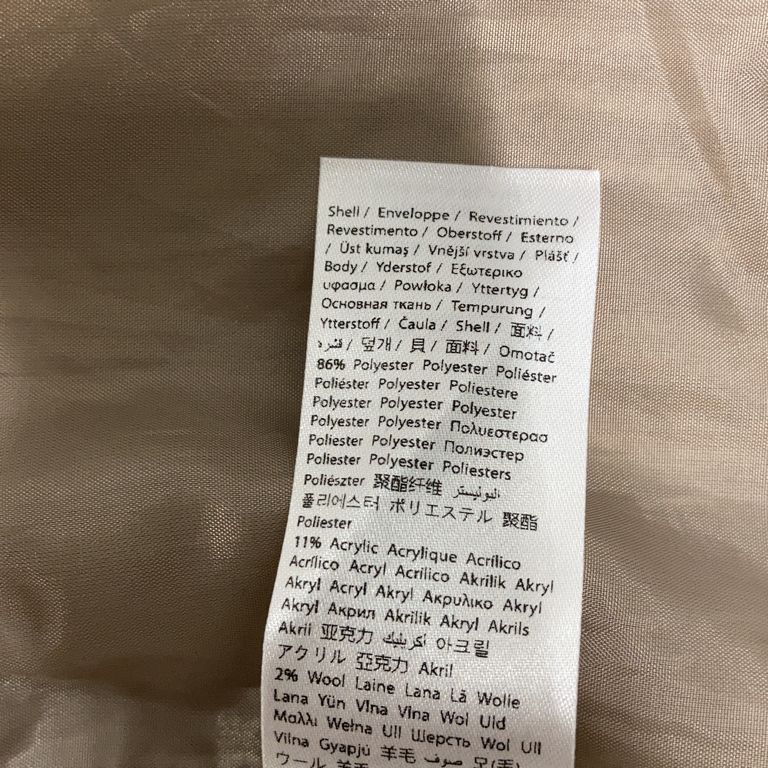 Shell / Enveloppe / Revestimiento /
Revestimento / Oberstoff / Esterno
/ Üst kumaş / Vnější vrstva / Plášť /
Body / Yderstof / Εξωτερικο
υφασμα / Powłoka / Yttertyg /
Основная ткань / Tempurung /
Ytterstoff / Čaula / Shell / 面料 /
قشره / 덮개 / 貝 / 面料 / Omotač
86% Polyester Polyester Poliéster
Poliéster Polyester Poliestere
Polyester Polyester Polyester
Polyester Polyester Πολυεστερασ
Poliester Polyester Полиэстер
Poliester Polyester Poliesters
Poliészter 聚酯纤维 البوليستر
폴리에스터 ポリエステル 聚酯
Poliester
11% Acrylic Acrylique Acrílico
Acrílico Acryl Acrilico Akrilik Akryl
Akryl Acryl Akryl Ακρυλικο Akryl
Akryl Акрил Akrilik Akryl Akrils
Akril 亚克力 اكريليك 아크릴
アクリル 亞克力 Akril
2% Wool Laine Lana Lã Wolle
Lana Yün Vlna Vlna Wol Uld
Μαλλι Wełna Ull Шерсть Wol Ull
Vilna Gyapjú 羊毛 صوف 모(毛)
ウール 羊毛